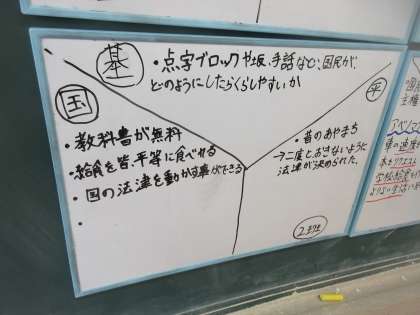 基
・点字ブロックや坂、手話など、国民が、
どのようにしたらくらしやすいか
国
・教科書が無料
・給食を皆、平等に食べれる
・国の法律を動かす事ができる
・
平
・昔のあやまち
→二度とおきないように
法律が決められた。